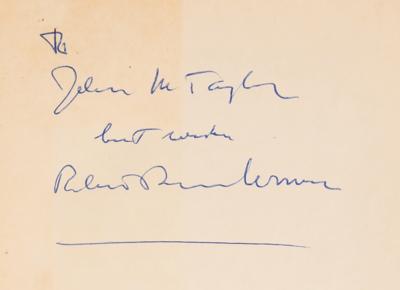 To
John M Taylor
best wishes
Robert Penn Warren